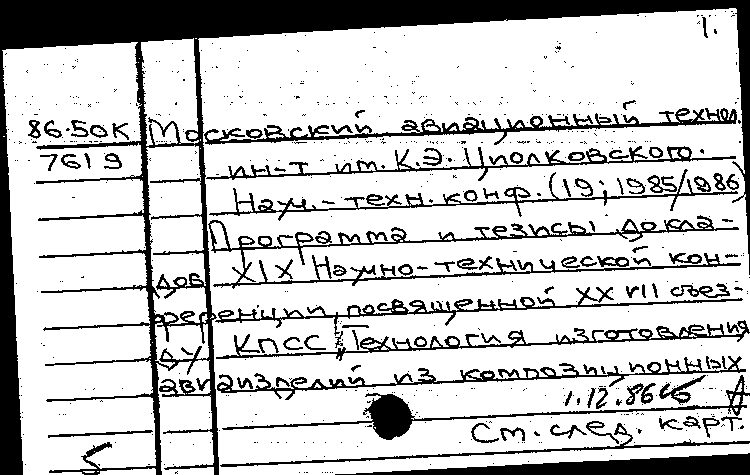 1.
86-50К Московский авиационный технол.
7619 ин-т им. К.Э. Циолковского.
Науч.-техн. конф. (19; 1985/1986)
Программа и тезисы докла-
дов XIX Научно-технической кон-
ференции, посвященной XXVII съез-
ду КПСС "Технология изготовления
авиаизделий из композиционных
1.12.86
См. след. карт.
5